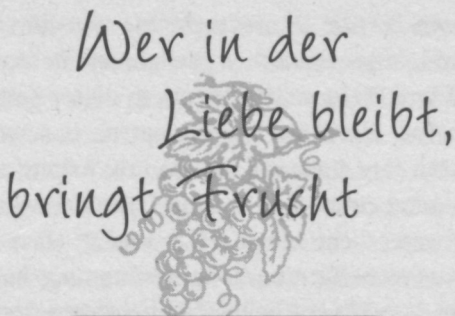 Wer in der
Liebe bleibt,
bringt Frucht